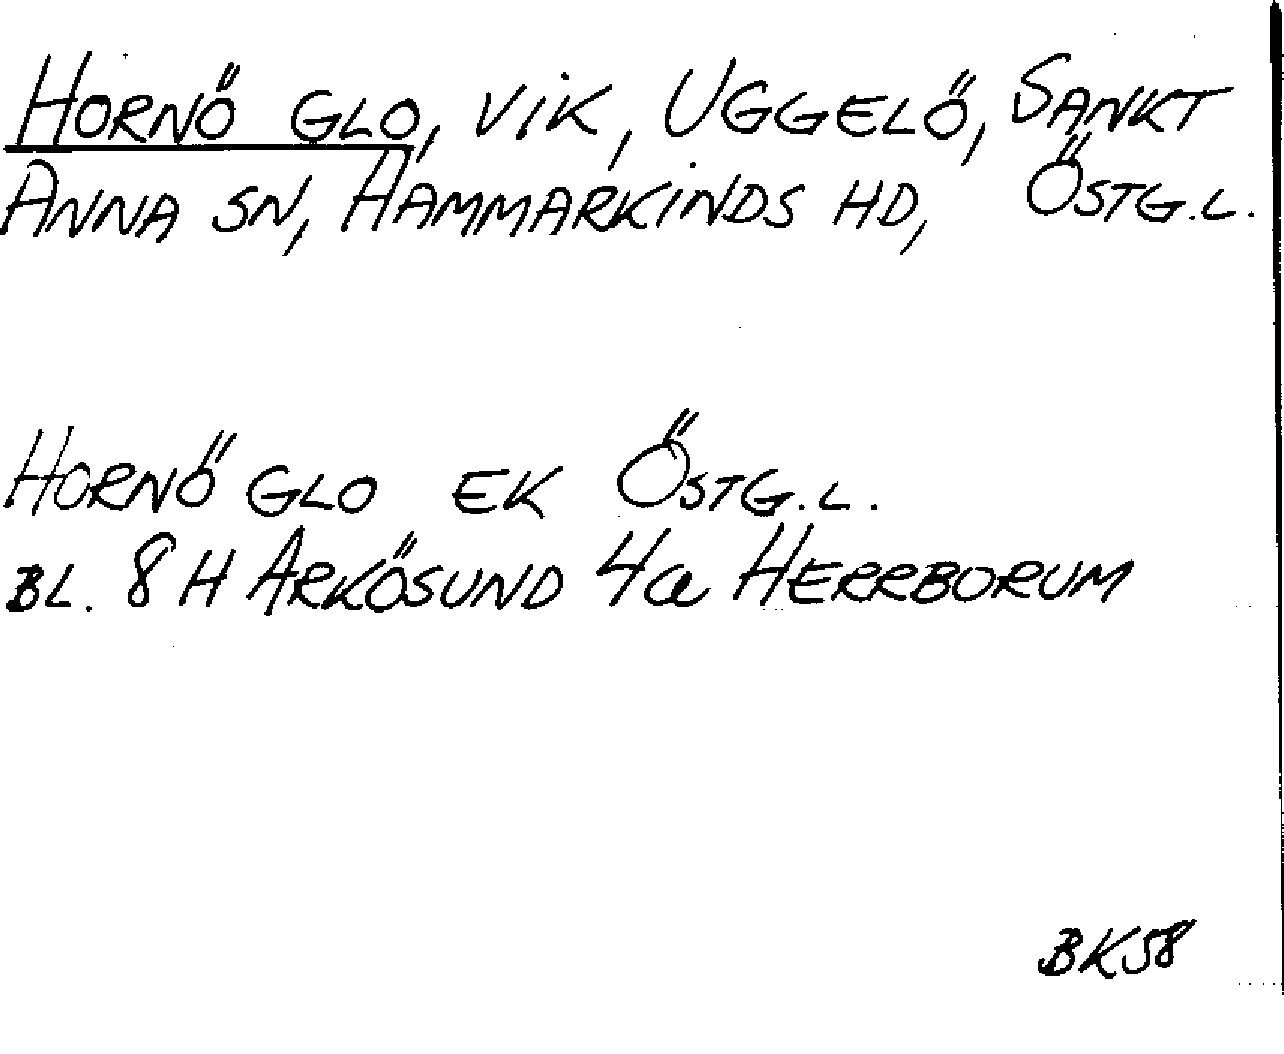 HORNÖ GLO, VIK, UGGELÖ, SANKT
ANNA SN, HAMMARKINDS HD, ÖSTG.L.
HORNÖ GLO EK ÖSTG.L.
BL. 8 H ARKÖSUND 4a HERRBORUM
BK58